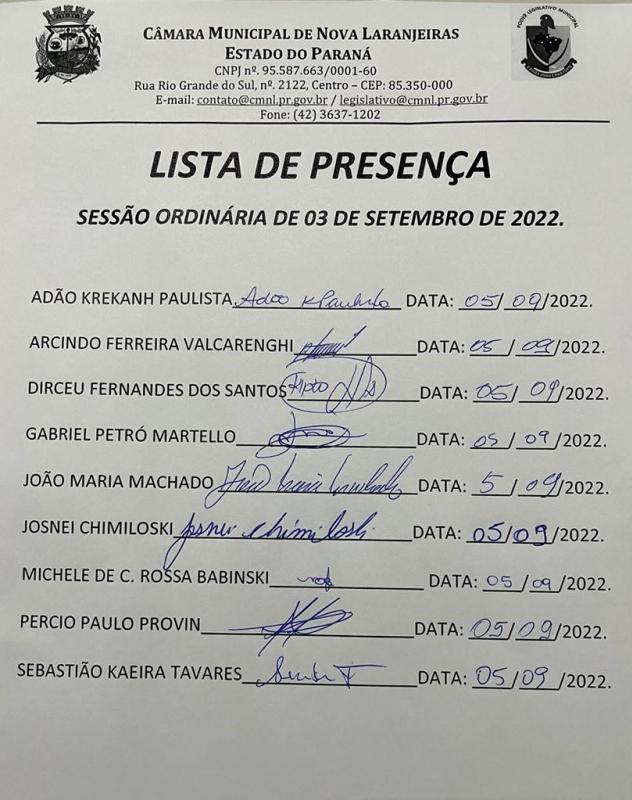 CÂMARA MUNICIPAL DE NOVA LARANJEIRAS
ESTADO DO PARANÁ
CNPJ nº. 95.587.663/0001-60
Rua Rio Grande do Sul, nº. 2122, Centro – CEP: 85.350-000
E-mail: contato@cmnl.pr.gov.br / legislativo@cmnl.pr.gov.br
Fone: (42) 3637-1202
PODER LEGISLATIVO MUNICIPAL
LISTA DE PRESENÇA
SESSÃO ORDINÁRIA DE 03 DE SETEMBRO DE 2022.
ADÃO KREKANH PAULISTA Adão K Paulista DATA: 05/09/2022.
ARCINDO FERREIRA VALCARENGHI DATA: 05/09/2022.
DIRCEU FERNANDES DOS SANTOS DATA: 05/09/2022.
GABRIEL PETRÓ MARTELLO DATA: 05/09/2022.
JOÃO MARIA MACHADO João Maria Machado DATA: 5/09/2022.
JOSNEI CHIMILOSKI Josnei Chimiloski DATA: 05/09/2022.
MICHELE DE C. ROSSA BABINSKI DATA: 05/09/2022.
PERCIO PAULO PROVIN DATA: 05/09/2022.
SEBASTIÃO KAEIRA TAVARES DATA: 05/09/2022.